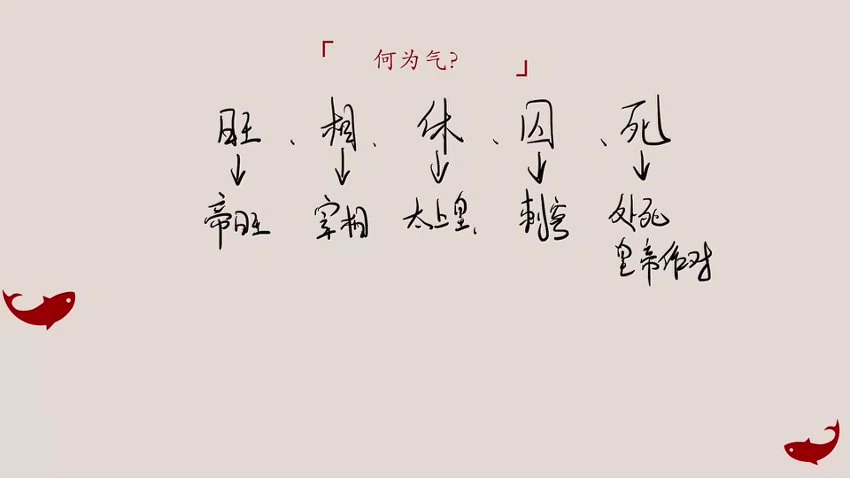 「 何为气? 」
旺、相、休、囚、死
帝旺 宰相 太上皇、 刺客 处死
皇帝作对